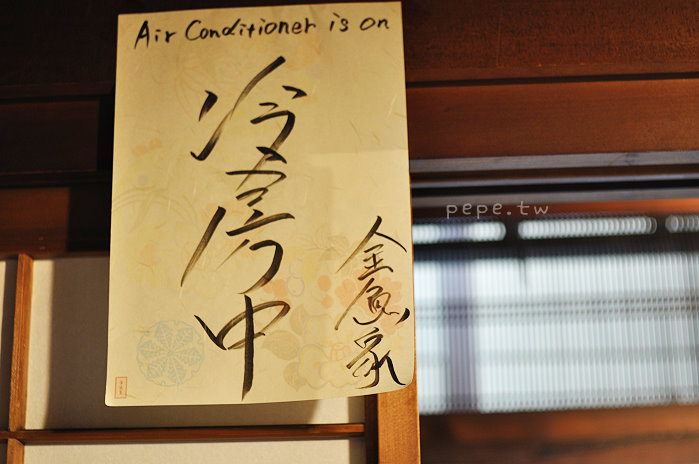 Air Conditioner is on
冷房中
金魚家
pepe.tw